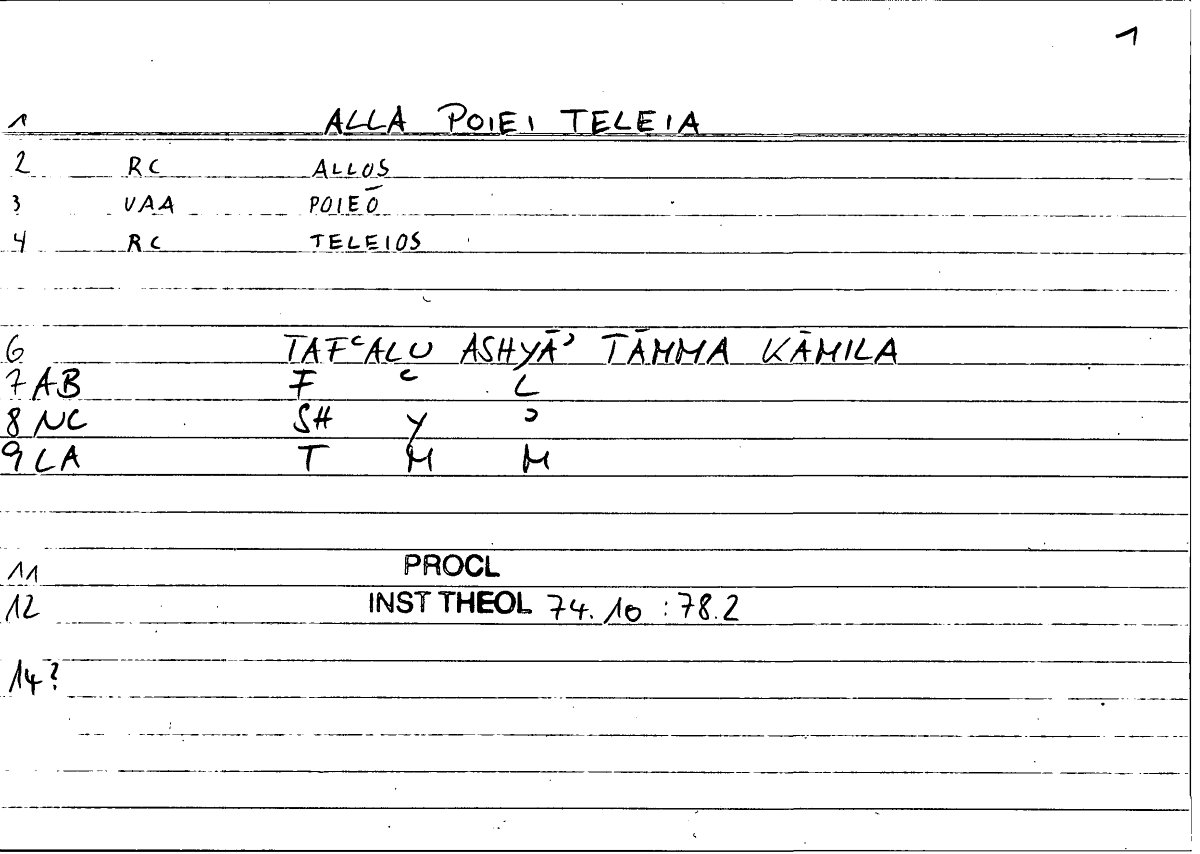 1
1 ALLA POIEI TELEIA
2 RC ALLOS
3 VAA POIEŌ
4 RC TELEIOS
6 TAFʿALU ASHYĀʾ TĀMMA KĀMILA
7 AB F ʿ L
8 NC SH Y ʾ
9 LA T M M
11 PROCL
12 INST THEOL 74.10 : 78.2
14?